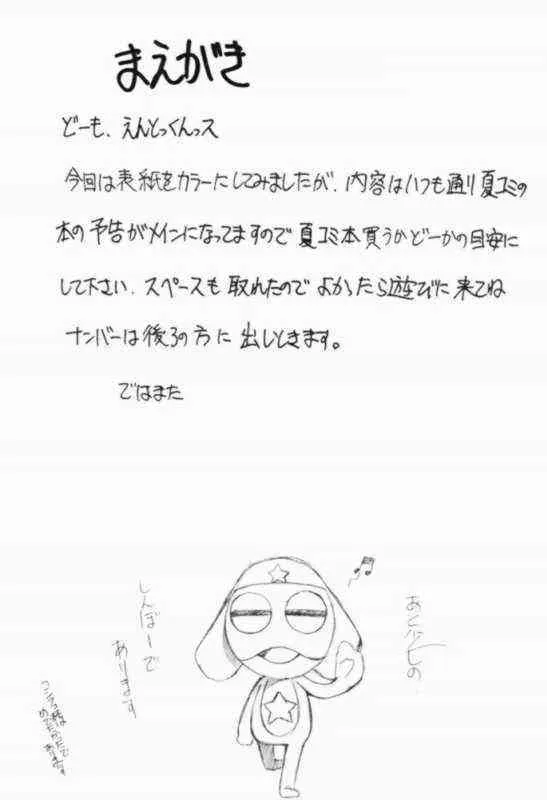 まえがき
どーも、えんとっくんっス
今回は表紙をカラーにしてみましたが、内容はいつも通り夏コミの
本の予告がメインになってますので夏コミ本買うかどーかの目安に
して下さい、スペースも取れたのでよかったら遊びに来てね
ナンバーは後ろの方に出しときます。
ではまた
あと少しの
しんぼーで
あります